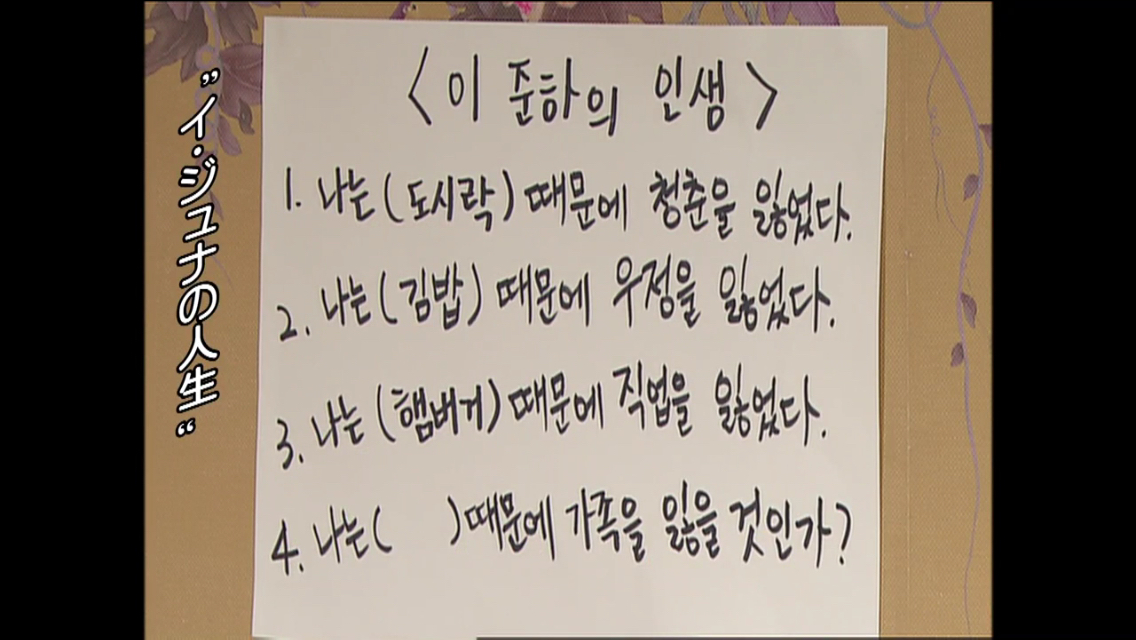 〈이 준하의 인생〉
1. 나는(도시락) 때문에 청춘을 잃었다.
2. 나는(김밥) 때문에 우정을 잃었다.
3. 나는(햄버거) 때문에 직업을 잃었다.
4. 나는(    )때문에 가족을 잃을 것인가?
"イ・ジュナの人生"